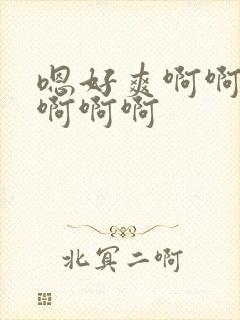 嗯好爽啊啊
啊啊啊
北冥二啊